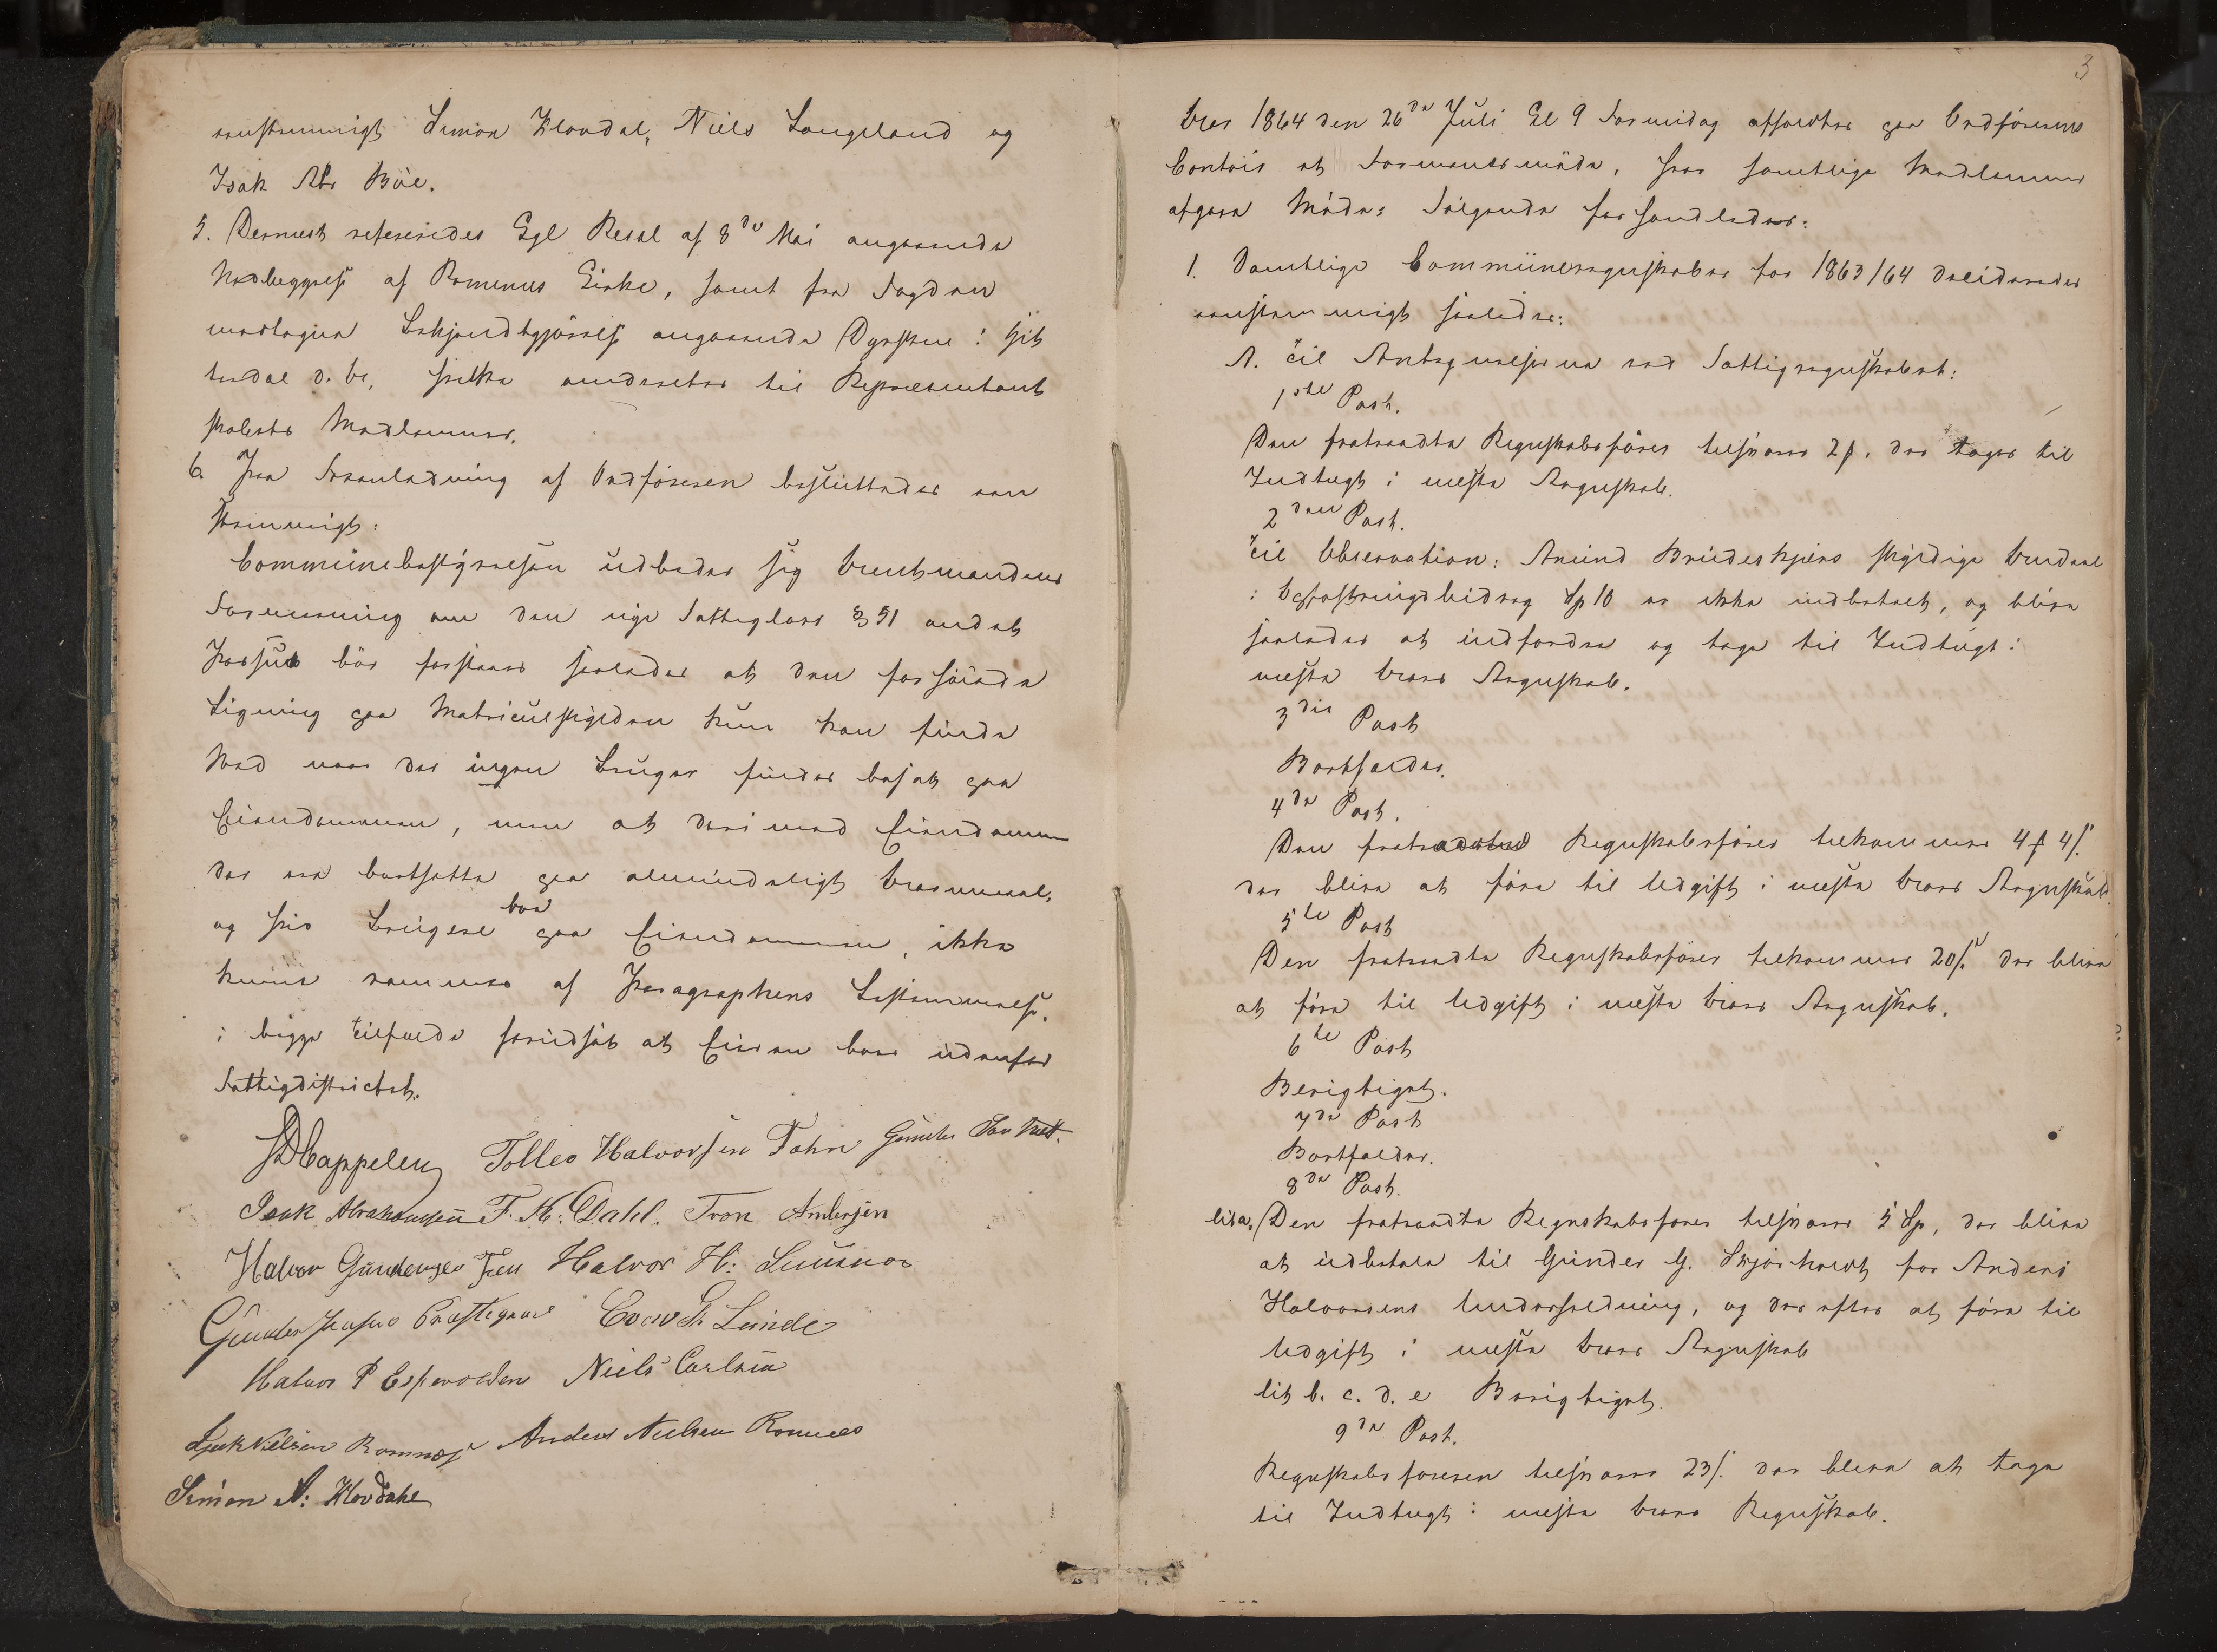 eenstemmigt Simon Klovdal, Niels Langeland og
Isak Abr Böe.
5. Dernest refereredes Kgl Resol af 8de Mai angaaende
Nedleggelse af Romenes Kirke, samt fra Fogden
modtagen Bekjendtgjörelse angaaende Dyrskue i Hit
terdal d. A., hvilke omdeeltes til Repræsentant
skabets Medlemmer.
6. Paa Foranledning af Ordföreren besluttedes een
stemmigt:
Communebestyrelsen udbeder sig Amtmandens
Formening om den nye Fattiglovs § 51 andet
Passus bör forstaaes saaledes at den forhöiede
Ligning paa Matriculskylden kun kan finde
Sted naar der ingen Bruger findes bosat paa
Eiendommen, men at derimod Eiendomme
der ere bortsatte paa almindeligt Aaremaal,
og hvis Brugere boe paa Eiendommen, ikke
kunne rammes af Paragraphens Bestemmelse,
i begge Tilfælde forudsat at Eieren boer udenfor
Fattigdistrictet.
DCappelen Tollev Halvorsen Fahre Gunder
Isak Abrahamsen F. H. Dahl. Tron Andersen
Halvor Gundersen Fen Halvor H: Snusnæs
Gunder Jensen Præstegaard Evav Th Lunde
Halvor P Espevolden Niels Carlsen
Isak Nielsen Romnæs Anders Nielsen Romnees
Simon N: Klovdahl
3
Aar 1864 den 26de Juli Kl 9 Formidag afholdtes paa Ordförerens
Contoir et Formandsmöde, hvor samtlige Medlemmer
afgave Möde: Fölgende forhandledes:
1. Samtlige Communeregnskaber for 1863/64 decideredes
eenstemmigt saaledes:
A. Til Antegnelserne ved Fattigregnskabet:
1ste Post.
Den fratraadte Regnskabsförer tilsvarer 2 ß. der tages til
Indtægt i næste Regnskab.
2den Post.
Til Observation: Amund Brudeskjærs skyldige Andeel
i Opfostringsbidrag Sp 10 er ikke indbetalt, og blive
saaledes at indfordre og tage til Indtægt i
næste Aars Regnskab.
3die Post
Bortfalder.
4de Post.
Den fratraadte Regnskabsförer tilkommer 4 ß 4 ß.
der blive at före til Udgift i næste Aars Regnskab.
5te Post
Den fratraadte Regnskabsförer tilkommer 20 ß. der blive
at före til Udgift i næste Aars Regnskab.
6te Post
Berigtiget.
7de Post
Bortfalder.
8de Post.
lit a. Den fratraadte Regnskabsförer tilsvarer 5 Sp, der blive
at udbetale til Gunder G. Skjærholdt for Anders
Halvorsens Underholdning, og derefter at före til
Udgift i næste Aars Regnskab
lit b. c. d. e Berigtiget.
9de Post.
Regnskabsföreren tilsvarer 23 ß. der blive at tage
til Indtægt i næste Aars Regnskab.